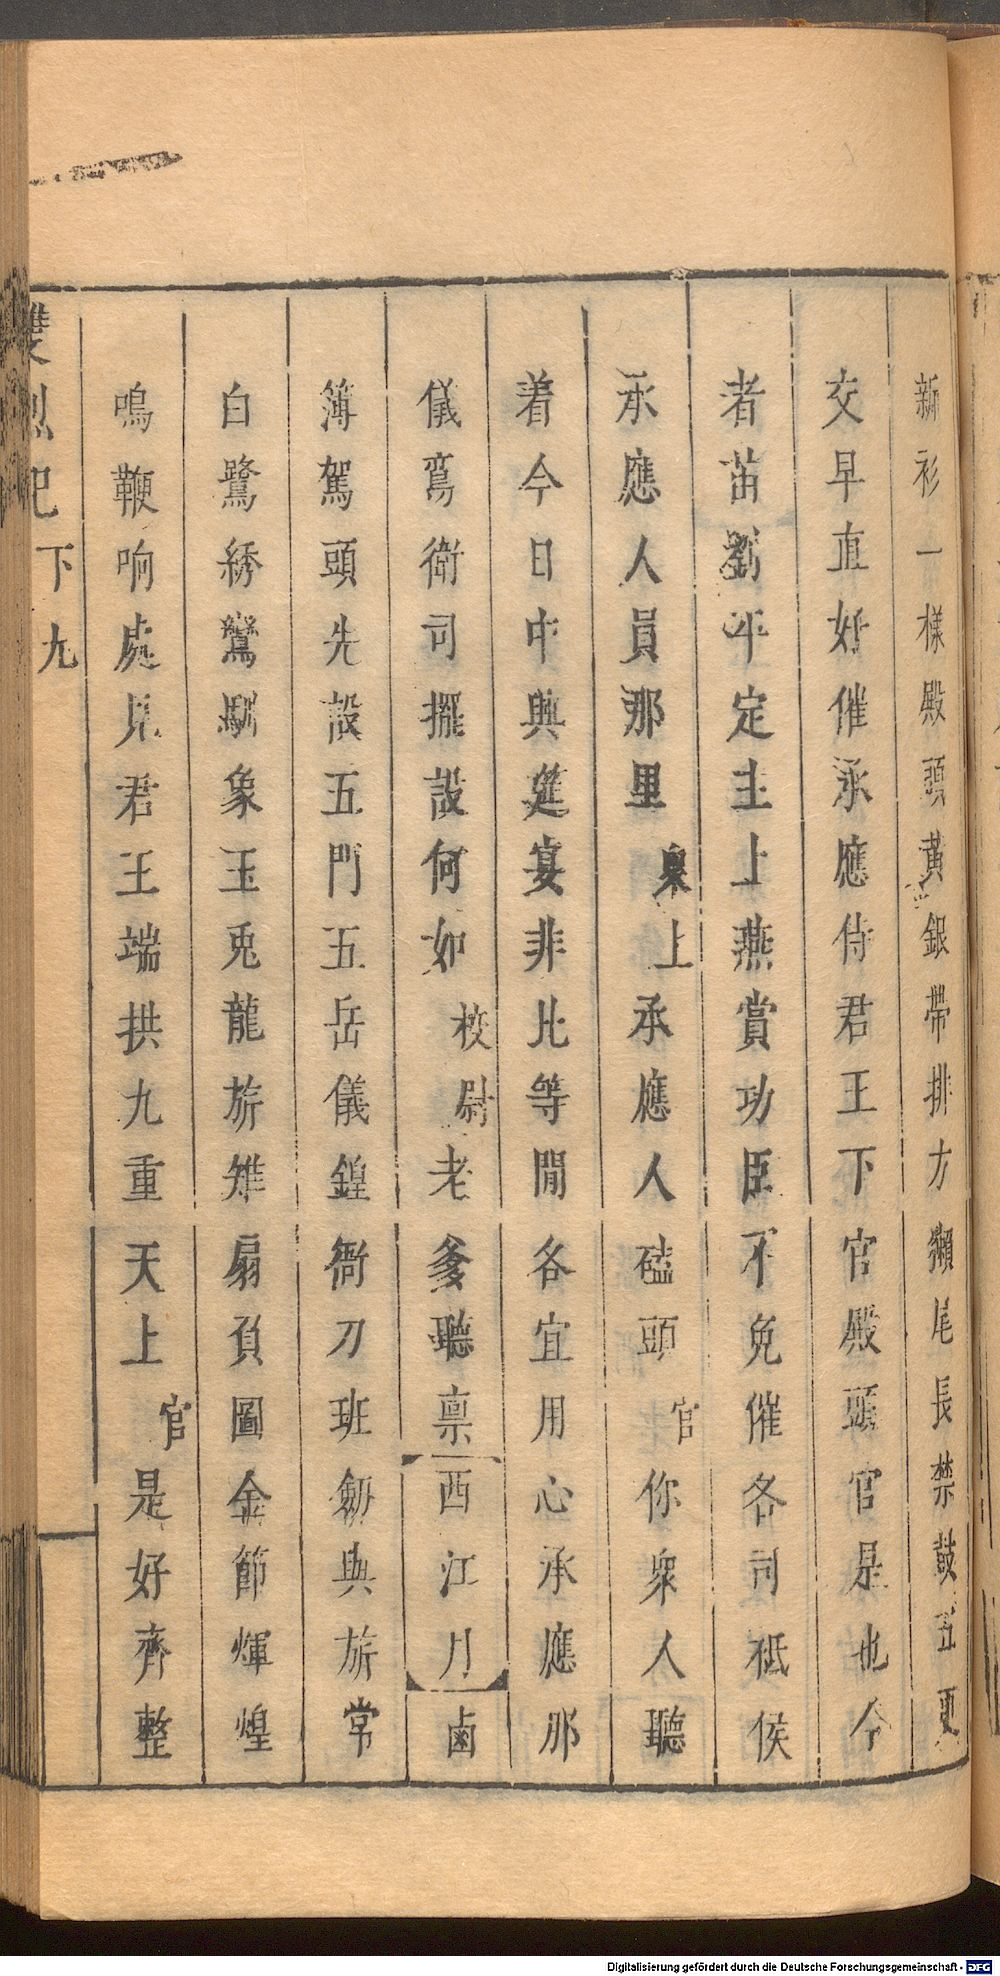 新衫一樣殿頭黃銀帶排方獺尾長禁鼓五更
交早直好催承應侍君王下官殿頭官是也今
者苗劉平定主上燕賞功臣不免催各司祗侯
承應人員那里衆上承應人磕頭官你衆人聽
着今日中興筵宴非比等閒各宜用心承應那
儀鸞衛司擺設何如校尉老爹聽禀西江月鹵
簿駕頭先設五門五岳儀鍠衙刀班劒與旂常
白鷺綉鸞馴象玉兎龍旂雉扇負圖金節輝煌
鳴鞭响處見君王端拱九重天上官是好齊整
雙烈記下九
Digitalisierung gefördert durch die Deutsche Forschungsgemeinschaft - DFG